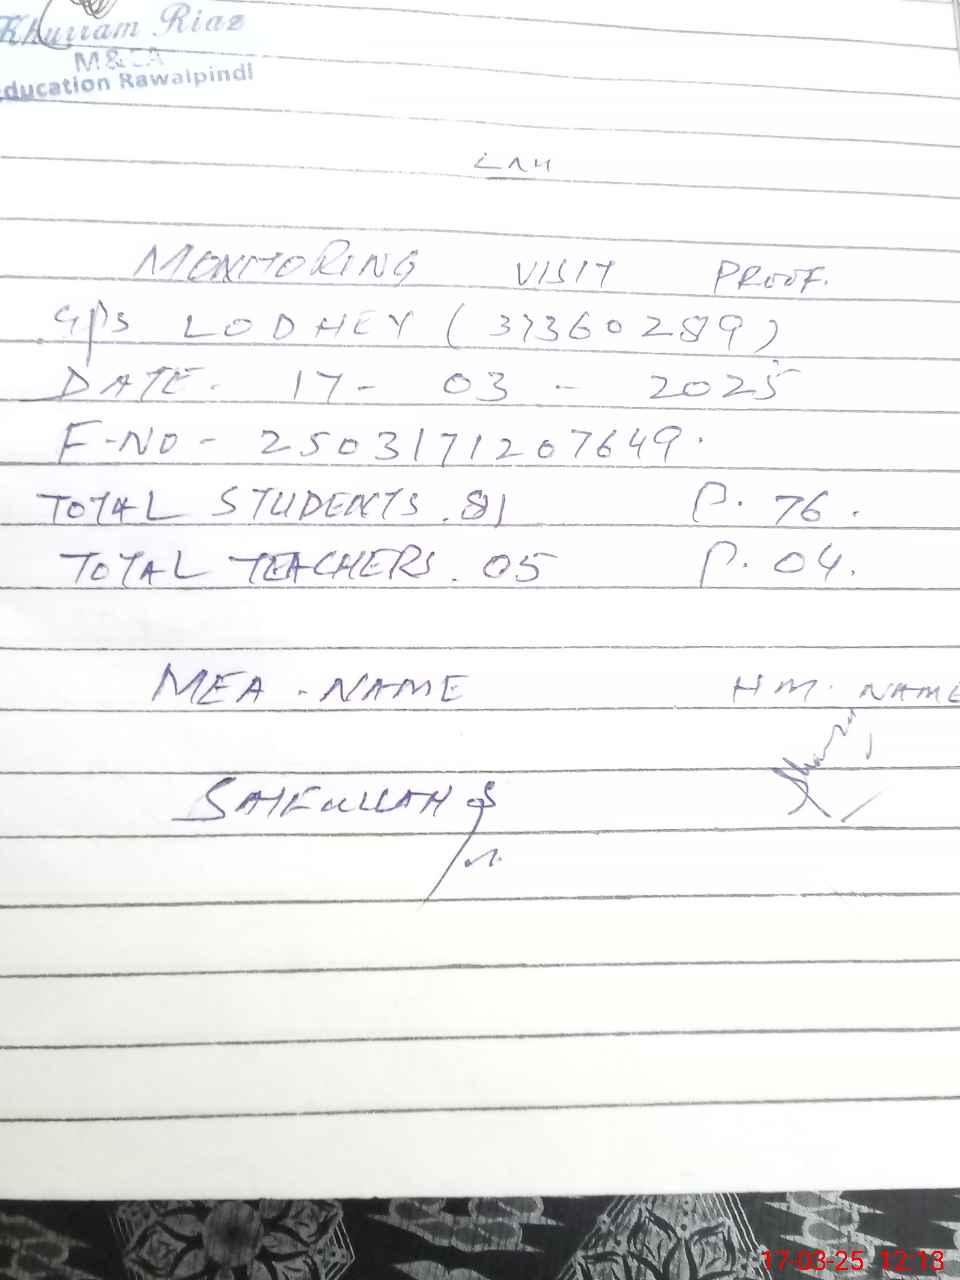 Khurram Riaz
M&EA
Education Rawalpindi
MONITORING VISIT PROOF.
GPS LODHEY (37360289)
DATE. 17- 03 - 2025
F-NO - 2503171207649.
TOTAL STUDENTS. 81 P. 76.
TOTAL TEACHERS. 05 P. 04.
MEA - NAME HM. NAME
SAIFULLAH
17-03-25 12:13